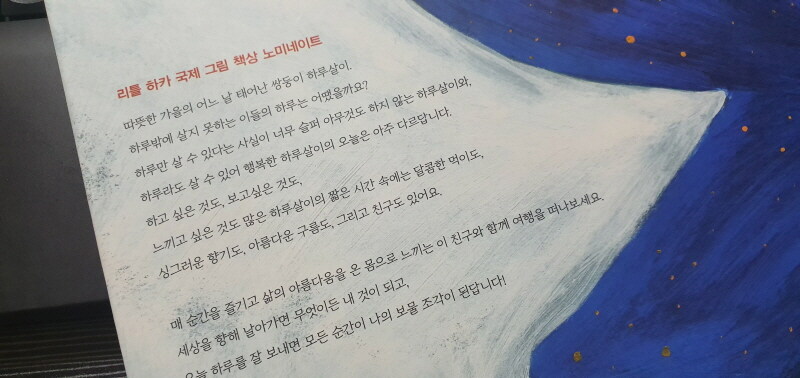 리틀 하카 국제 그림 책상 노미네이트
따뜻한 가을의 어느 날 태어난 쌍둥이 하루살이.
하루밖에 살지 못하는 이들의 하루는 어땠을까요?
하루만 살 수 있다는 사실이 너무 슬퍼 아무것도 하지 않는 하루살이와,
하루라도 살 수 있어 행복한 하루살이의 오늘은 아주 다르답니다.
하고 싶은 것도, 보고싶은 것도,
느끼고 싶은 것도 많은 하루살이의 짧은 시간 속에는 달콤한 먹이도,
싱그러운 향기도, 아름다운 구름도, 그리고 친구도 있어요.
매 순간을 즐기고 삶의 아름다움을 온 몸으로 느끼는 이 친구와 함께 여행을 떠나보세요.
세상을 향해 날아가면 무엇이든 내 것이 되고,
오늘 하루를 잘 보내면 모든 순간이 나의 보물 조각이 된답니다!